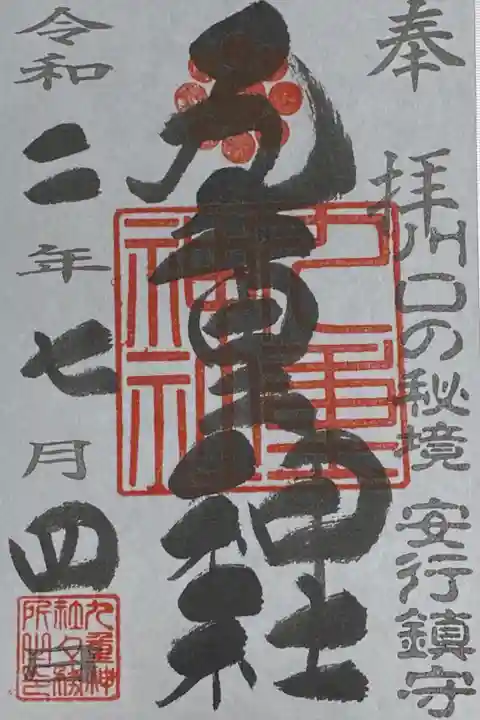 奉拝
川口の秘境 安行鎮守
九重神社
九重神社
令和二年七月四日
九重神
社